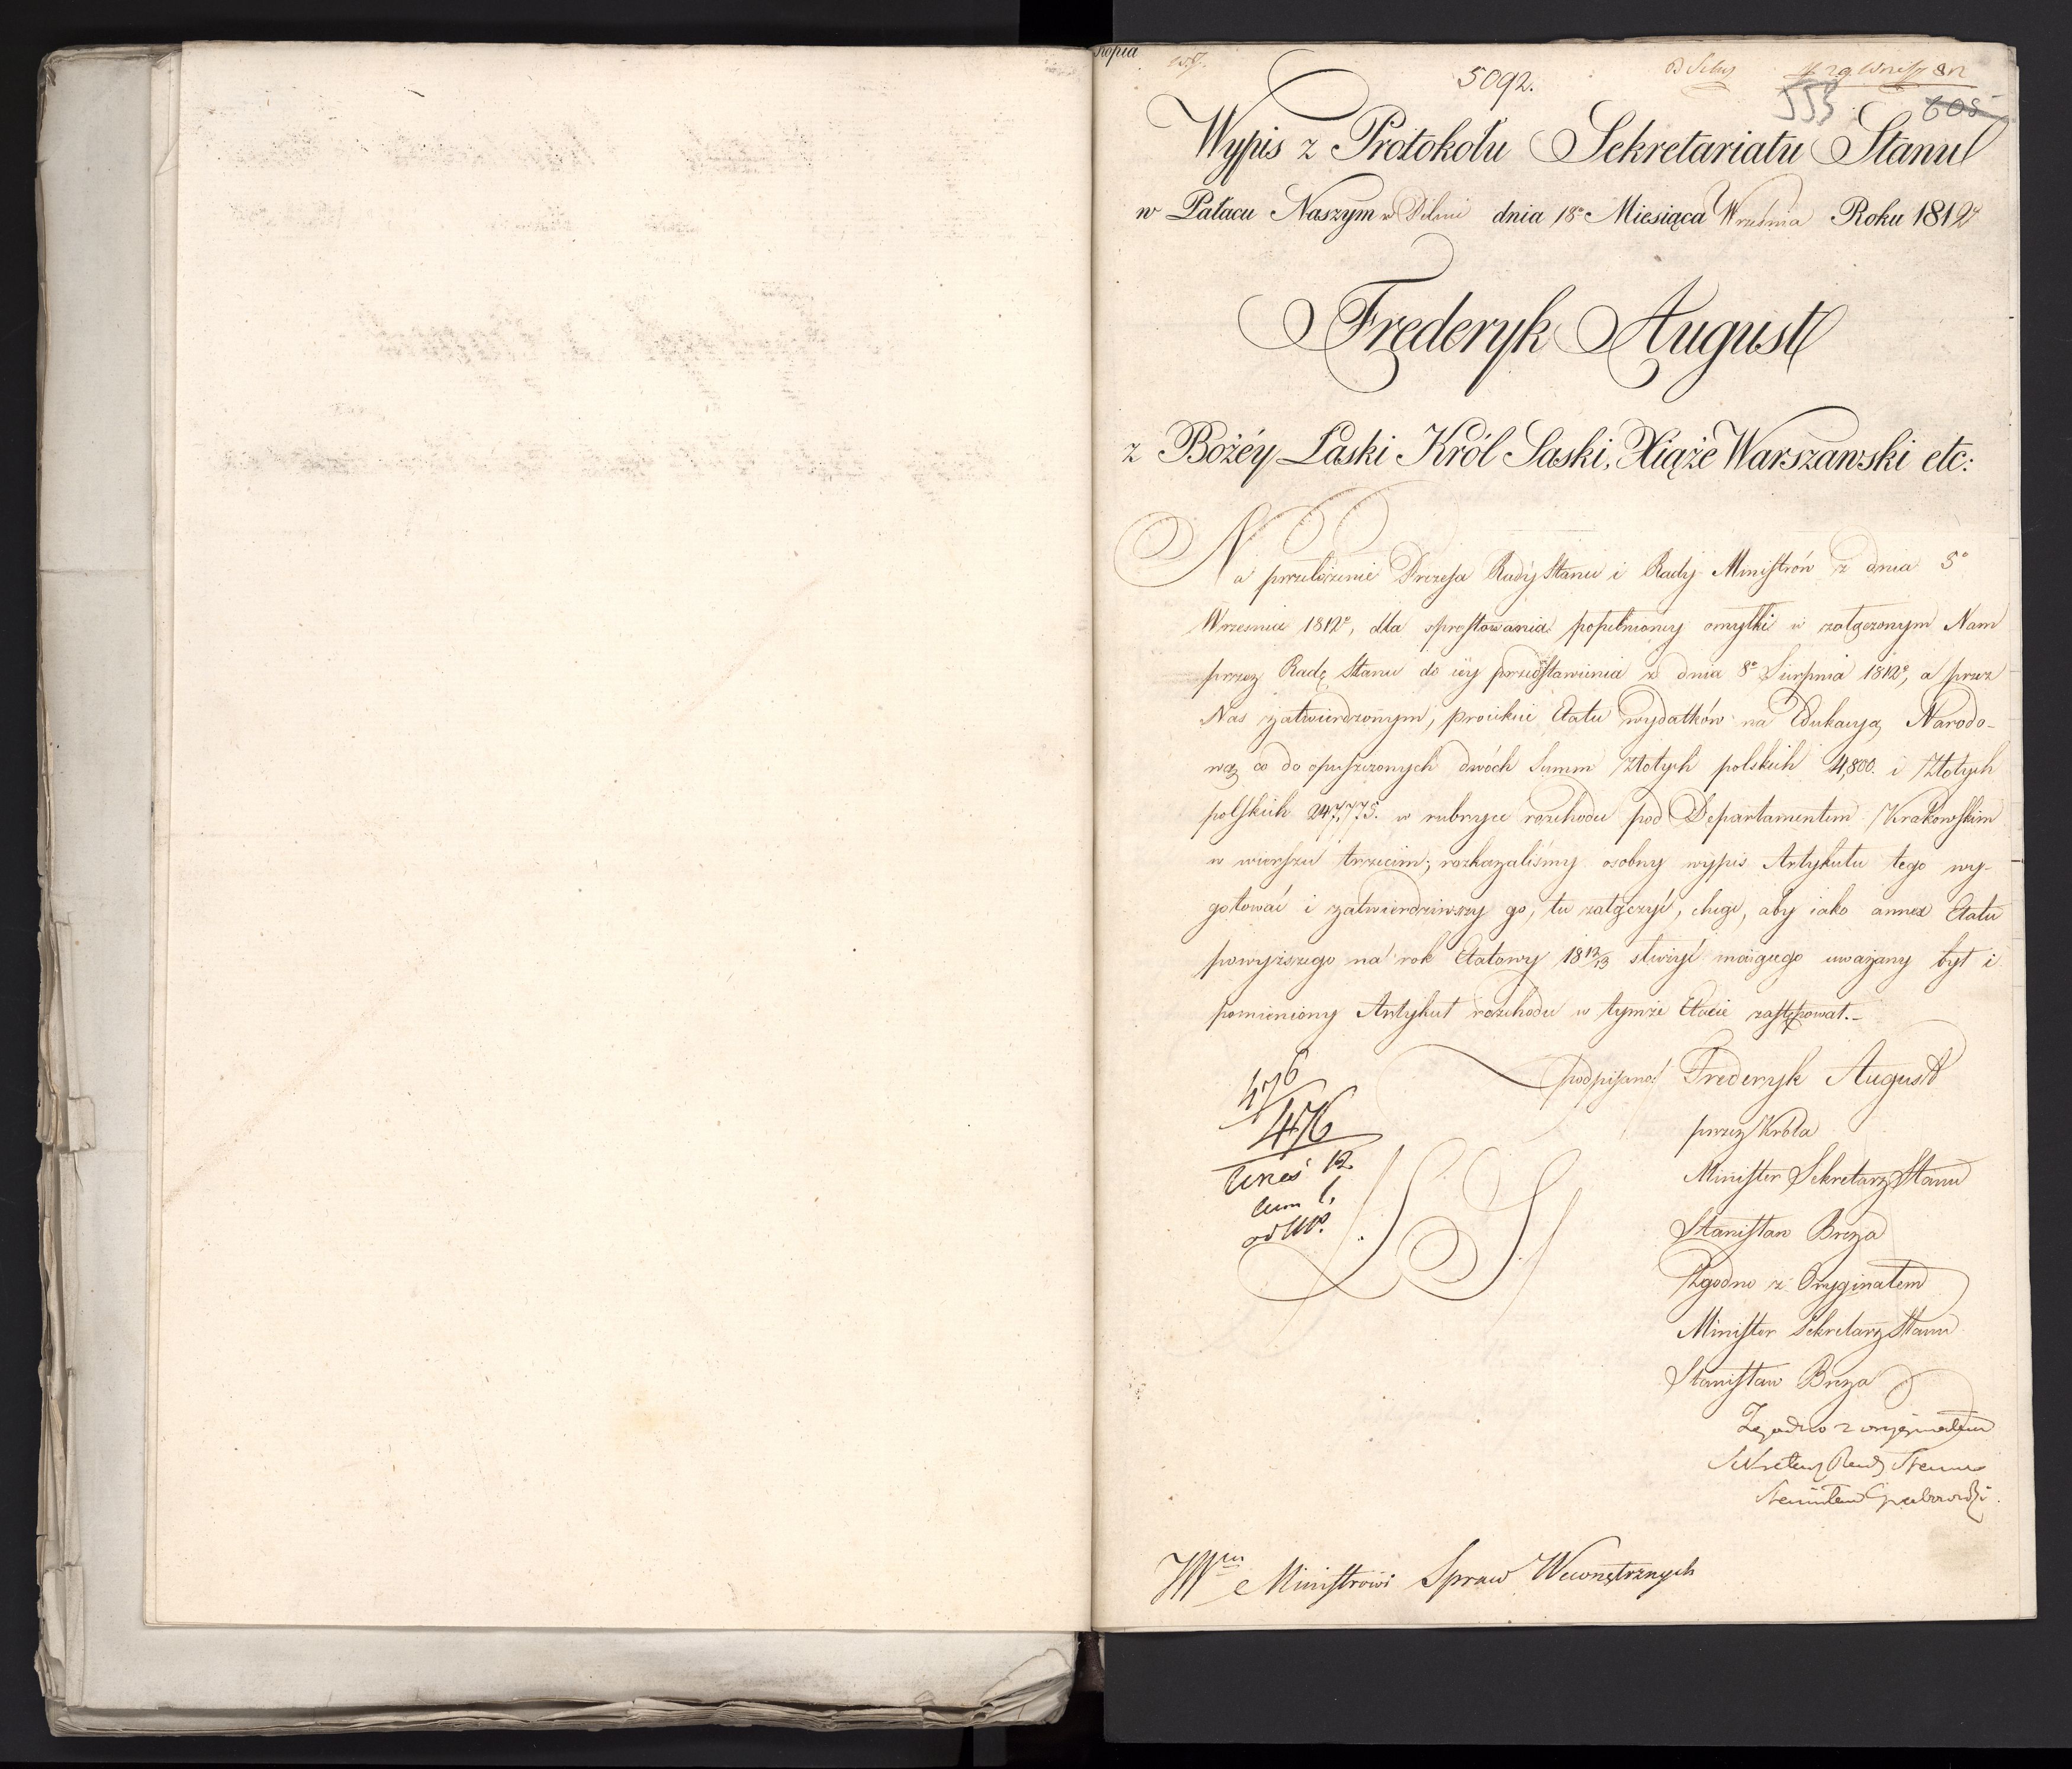 Kopia
5092.
553
605
Wypis z Protokołu Sekretariatu Stanu
w Pałacu Naszym w Pilnic dnia 18º Miesiąca Września Roku 1812
Frederyk August
z Bożéy Łaski Król Saski, Xiąże Warszawski etc:
Na przełożenie Prezesa Rady Stanu i Rady Ministrów z dnia 5º
Września 1812º, dla sprostowania popełnioney omyłki w załączonym Nam
przez Radę Stanu do iéy przedstawienia z dnia 8º Sierpnia 1812º, a przez
Nas zatwierdzonym, proiekcie Etatu wydatków na Edukacyą Narodo-
wą co do opuszczonych dwóch Summ Złotych polskich 4,800. i Złotych
polskich 247,775. w rubryce rozchodu pod Departamentem Krakowskim
w wierszu trzecim, rozkazaliśmy osobny wypis Artykułu tego wy-
gotować i zatwierdziwszy go, tu załączyć, chcąc, aby iako annex Etatu
powyższego na rok Etatowy 18 12/13 służyć maiącego uważany był i
pomieniony Artykuł rozchodu w tymże Etacie zastępował.-
podpisano: Frederyk August
przez Króla
Minister Sekretarz Stanu
Stanisław Breza
Zgodno z Oryginałem
Minister Sekretarz Stanu
Stanisław Breza
Zgodno z oryginałem
Sekretarz Rady Stanu
Stanisław Grabowski
476
476
12
L S
JWmu Ministrowi Spraw Wewnętrznych